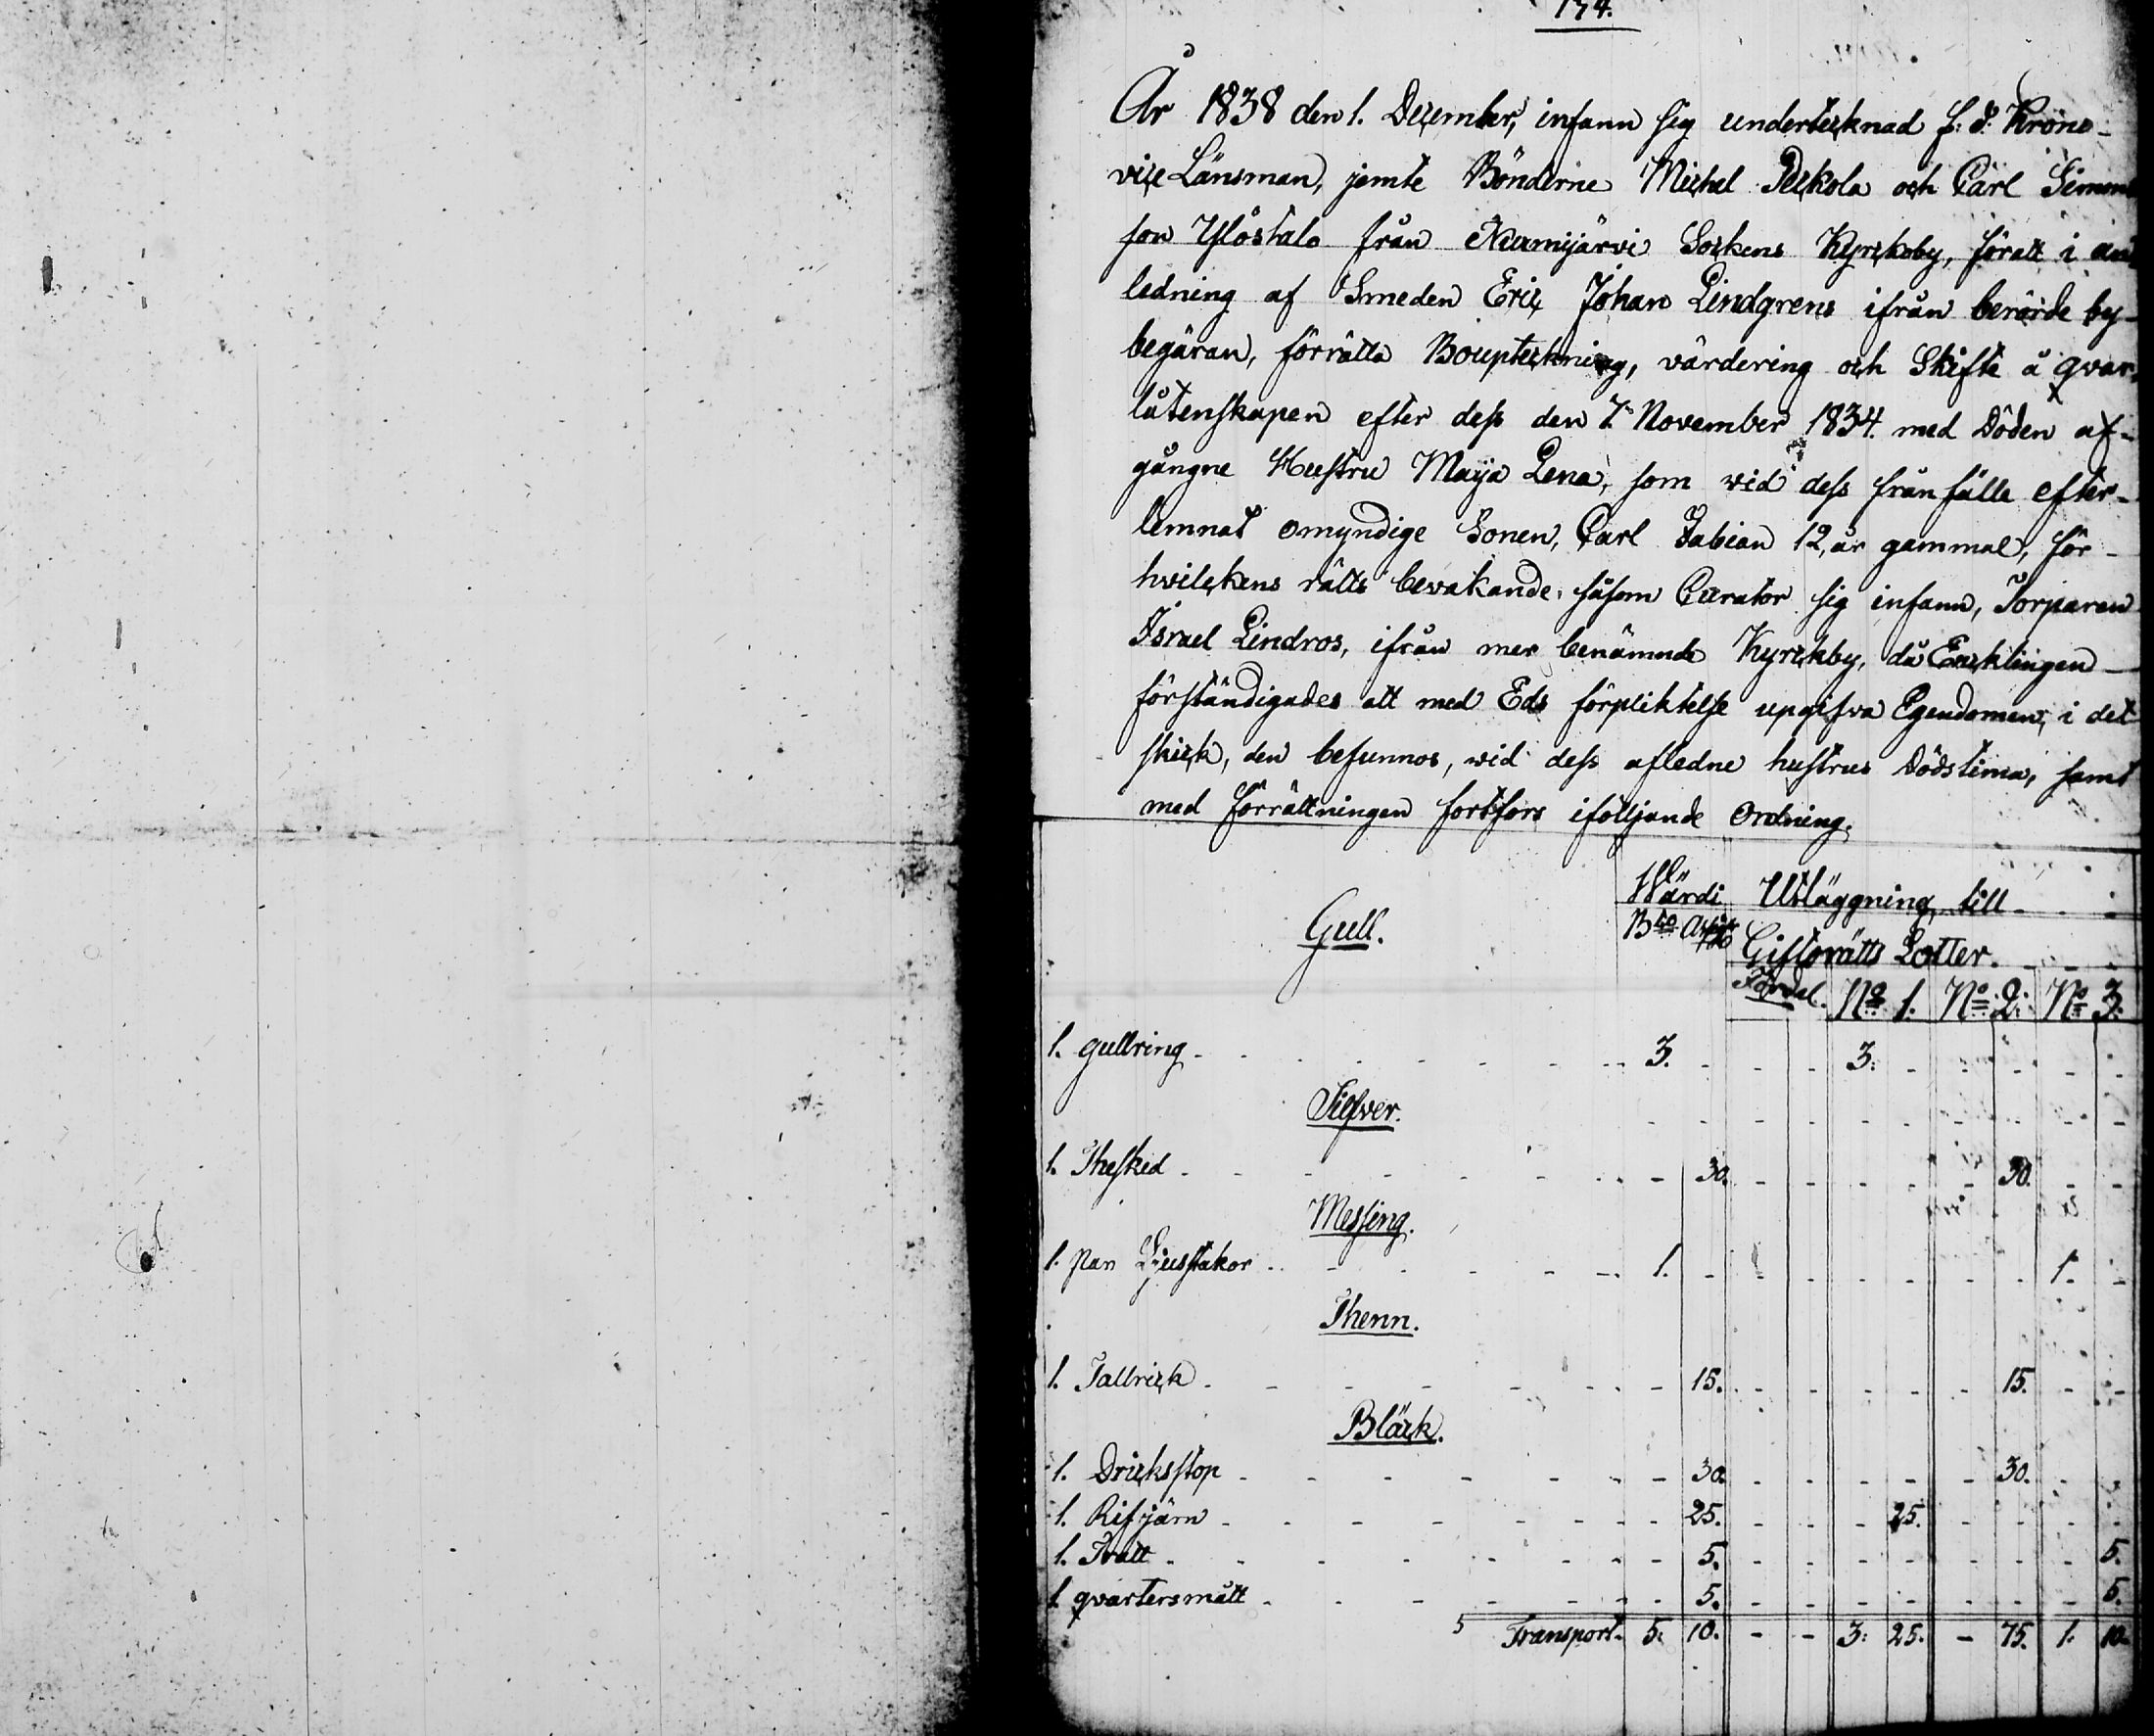 174.
År 1838 den 1. December, infann sig undertecknad f: d: Krono-
vice Länsman, jemte Bönderne Michel Peckola och Carl Simons
son Ylöstalo från Nurmijärvi Sockens Kyrckoby, föratt i an
ledning af Smeden Eric Johan Lindgrens ifrån berörde by-
begäran, förrätta Boupteckning, värdering och Skifte å qvar-
låtenskapen efter dess den 7. November 1834. med Döden af-
gångne Hustru Maija Lena, som wid dess frånfälle efter-
lemnat omyndige Sonen, Carl Fabian 12, år gammal, för-
hvilckens rätts bevakande, såsom Curator sig infann, Torparen
Israel Lindros, ifrån mer benämnde Kyrckby, då Encklingen
förständigades att med Eds förpliktelse upgifva Egendomen, i det
skick, den befunnos, wid dess afledne hustrus Dödstima, samt
med förrättningen fortfors iföljande Ordning,
Wärdi Utläggning till
Gull. B:co Assig
Giftorätts Lotter.
Fördel. No 1. No 2. No 3.
1. gullring - 3. - - - 3: - - - - -
Silfver.
1. Thesked - - 30. - - - - - 30. - -
Messing.
1. par Ljusstakor - 1. - - - - - - - 1. -
Thenn.
1. Tallrick - - 15. - - - - - 15. - -
Bläck.
1. Dricksstop - - 30. - - - - - 30. - -
1. Rifjärn - - 25. - - - 25. - - - -
1. Tratt - - 5. - - - - - - - 5.
1. qvartersmått - - 5. - - - - - - - 5.
5 Transport. 5: 10. - - 3: 25. - 75. 1. 10.